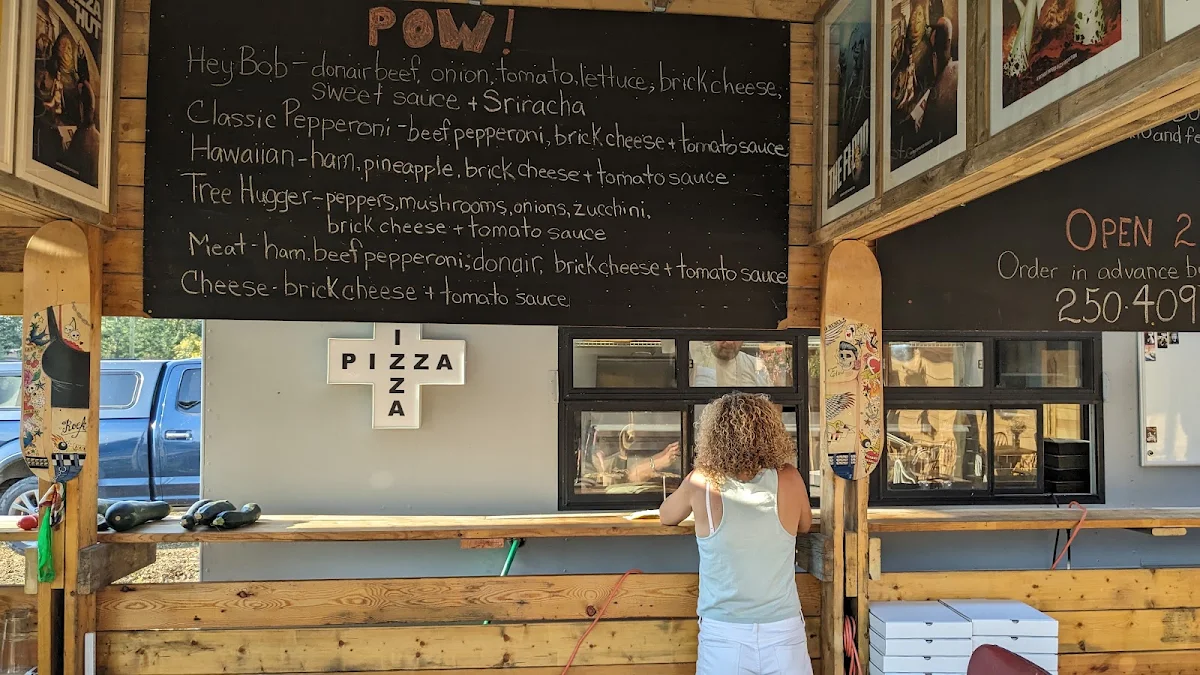 POW!
Hey Bob - donair beef, onion, tomato, lettuce, brick cheese,
sweet sauce + Sriracha
Classic Pepperoni - beef pepperoni, brick cheese + tomato sauce
Hawaiian - ham, pineapple, brick cheese + tomato sauce
Tree Hugger - peppers, mushrooms, onions, zucchini,
brick cheese + tomato sauce
Meat - ham, beef pepperoni, donair, brick cheese + tomato sauce
Cheese - brick cheese + tomato sauce
PIZZA
PIZZA
OPEN 2
Order in advance b
250.409
HUT
Rock